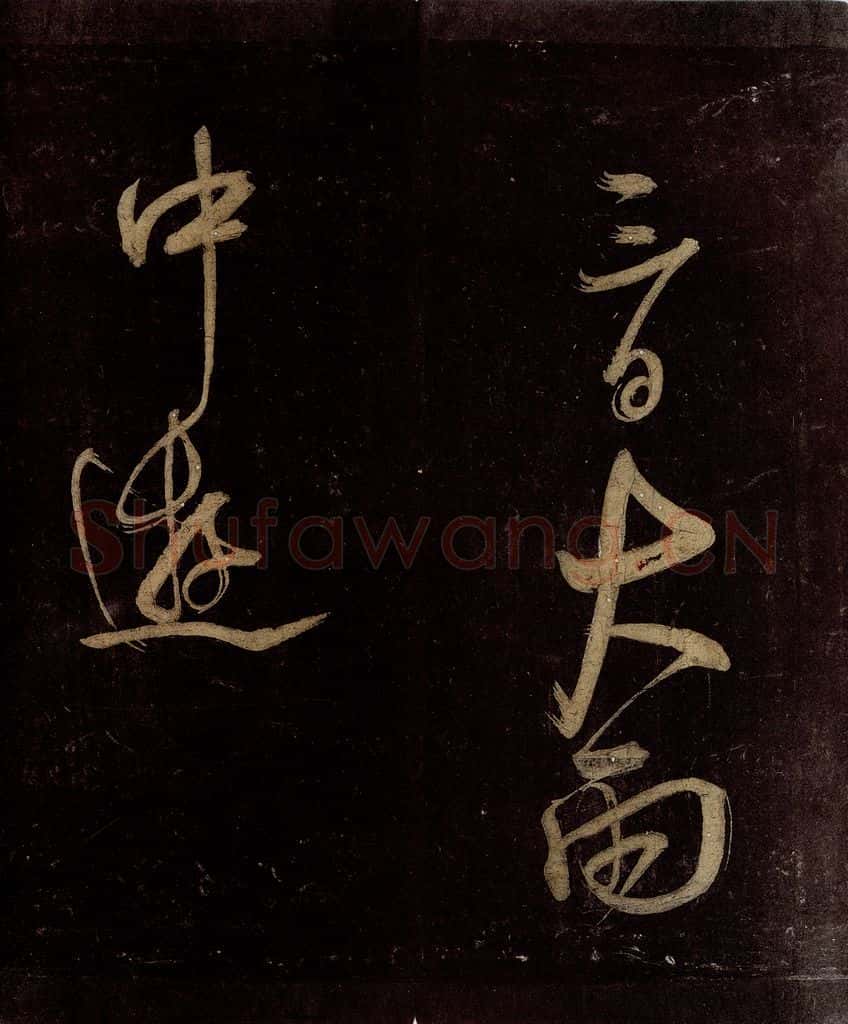 音大雨
中遊
Shufawang.CN